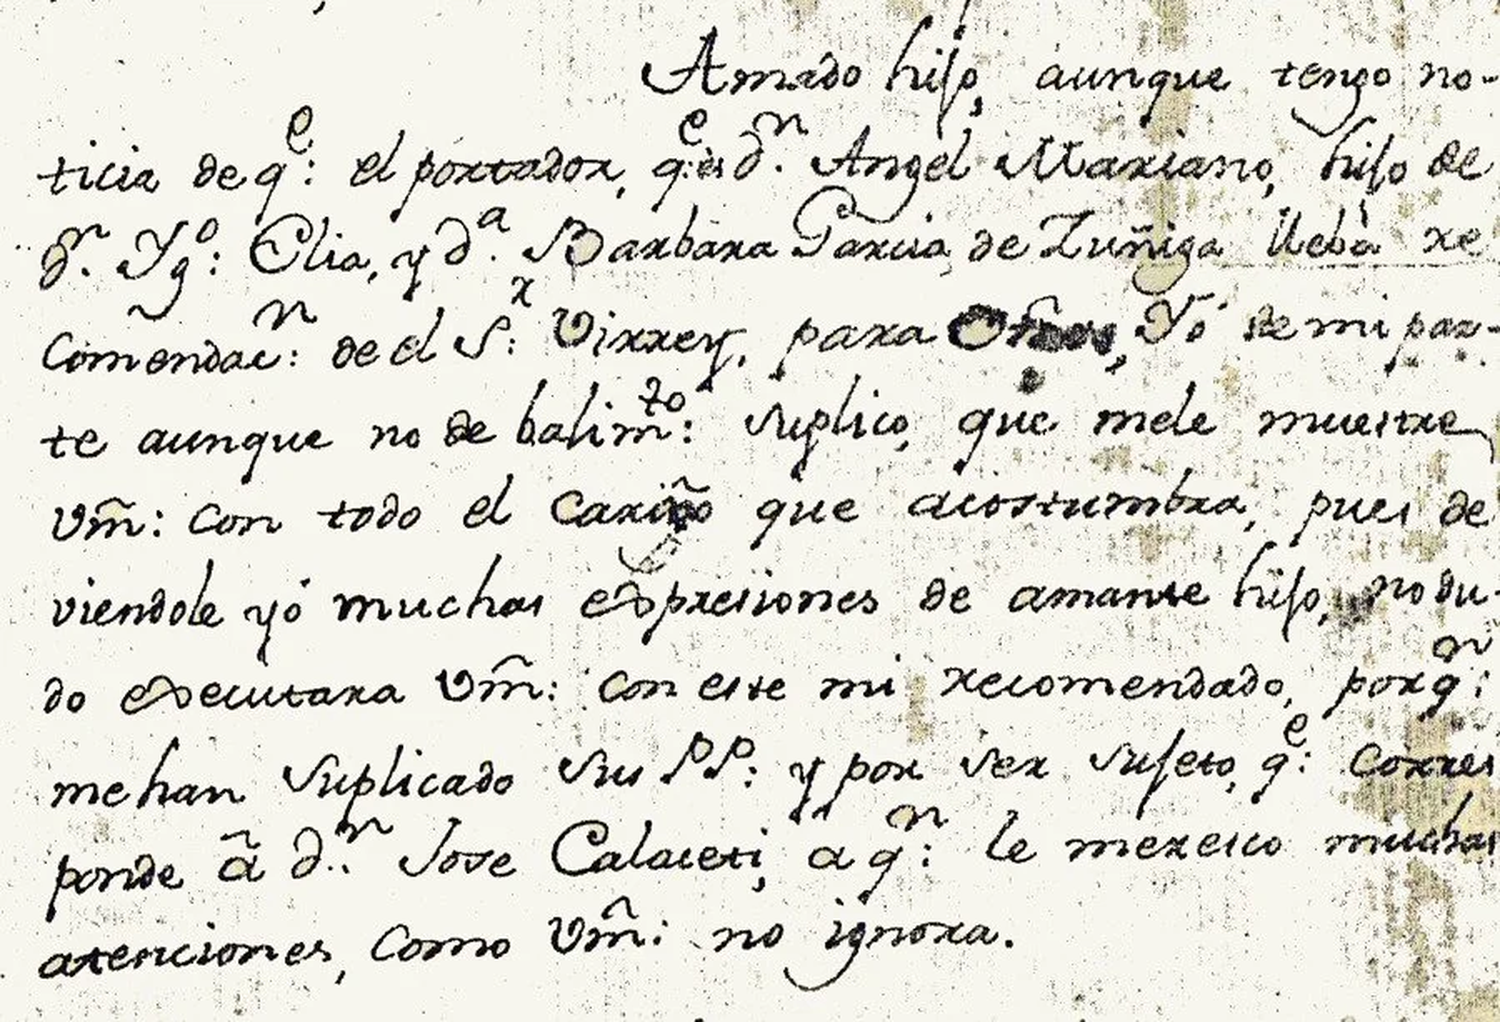 Amado hijo, aunque tengo no-
ticia de q.e: el portador, q.e es d.n Angel Mariano, hijo de
d.n Yg.o: Elia, y d.a Barbara Garcia de Zuñiga llebà re
Comendac.n: de el S.r: Virrey, para Yó de mi par-
te aunque no de balim.to: suplico, que mele muestre
Vm̃: con todo el Cariño que acostumbra, pues de
viendole yó muchas expresiones de amante hijo, no du-
do executara Vm̃: con este mi recomendado, porq.n:
me han suplicado sus PP: y por ser sujeto, q.e: corres
ponde ã d.n Jose Calaceti, a q.n: le meresco muchas
atenciones, como Vm̃: no ignora.